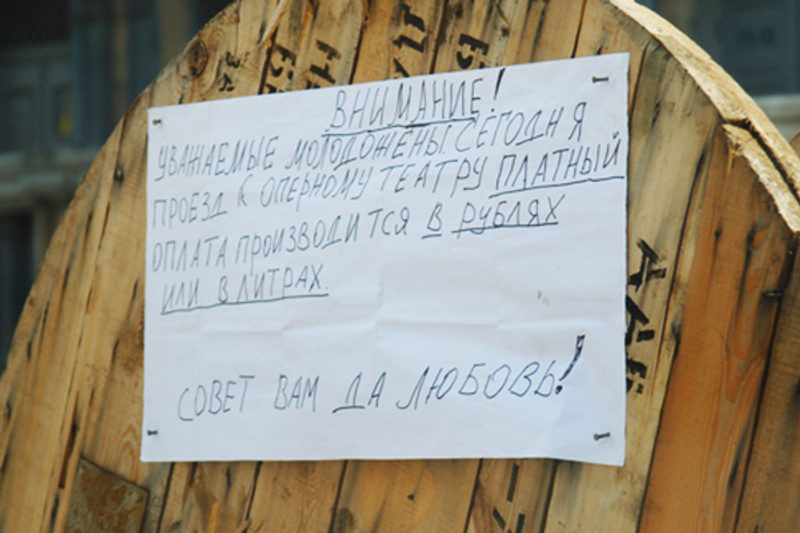 ВНИМАНИЕ!
УВАЖАЕМЫЕ МОЛОДОЖЕНЫ. СЕГОДНЯ
ПРОЕЗД К ОПЕРНОМУ ТЕАТРУ ПЛАТНЫЙ
ОПЛАТА ПРОИЗВОДИТСЯ В РУБЛЯХ
ИЛИ В ЛИТРАХ.
СОВЕТ ВАМ ДА ЛЮБОВЬ!